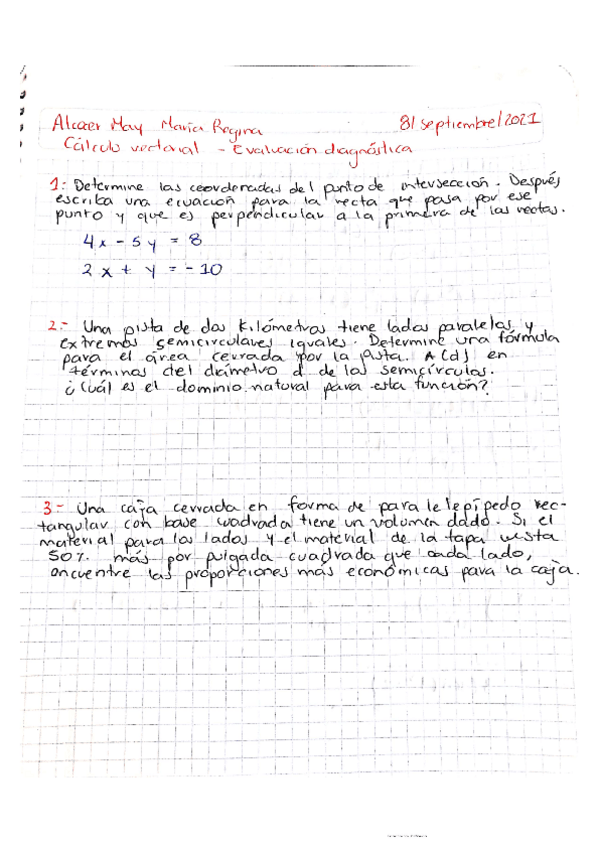 Alcocer May María Regina 8/septiembre/2021
Cálculo vectorial - Evaluación diagnóstica
1: Determine las coordenadas del punto de intersección. Después
escriba una ecuación para la recta que pasa por ese
punto y que es perpendicular a la primera de las rectas.
4x - 5y = 8
2x + y = -10
2.- Una pista de dos kilómetros tiene lados paralelos y
extremos semicirculares iguales. Determine una fórmula
para el área cerrada por la pista. A(d) en
términos del diámetro d de los semicírculos.
¿Cuál es el dominio natural para esta función?
3.- Una caja cerrada en forma de paralelepípedo rec-
tangular con base cuadrada tiene un volumen dado. Si el
material para los lados y el material de la tapa cuesta
50% más por pulgada cuadrada que cada lado,
encuentre las proporciones más económicas para la caja.